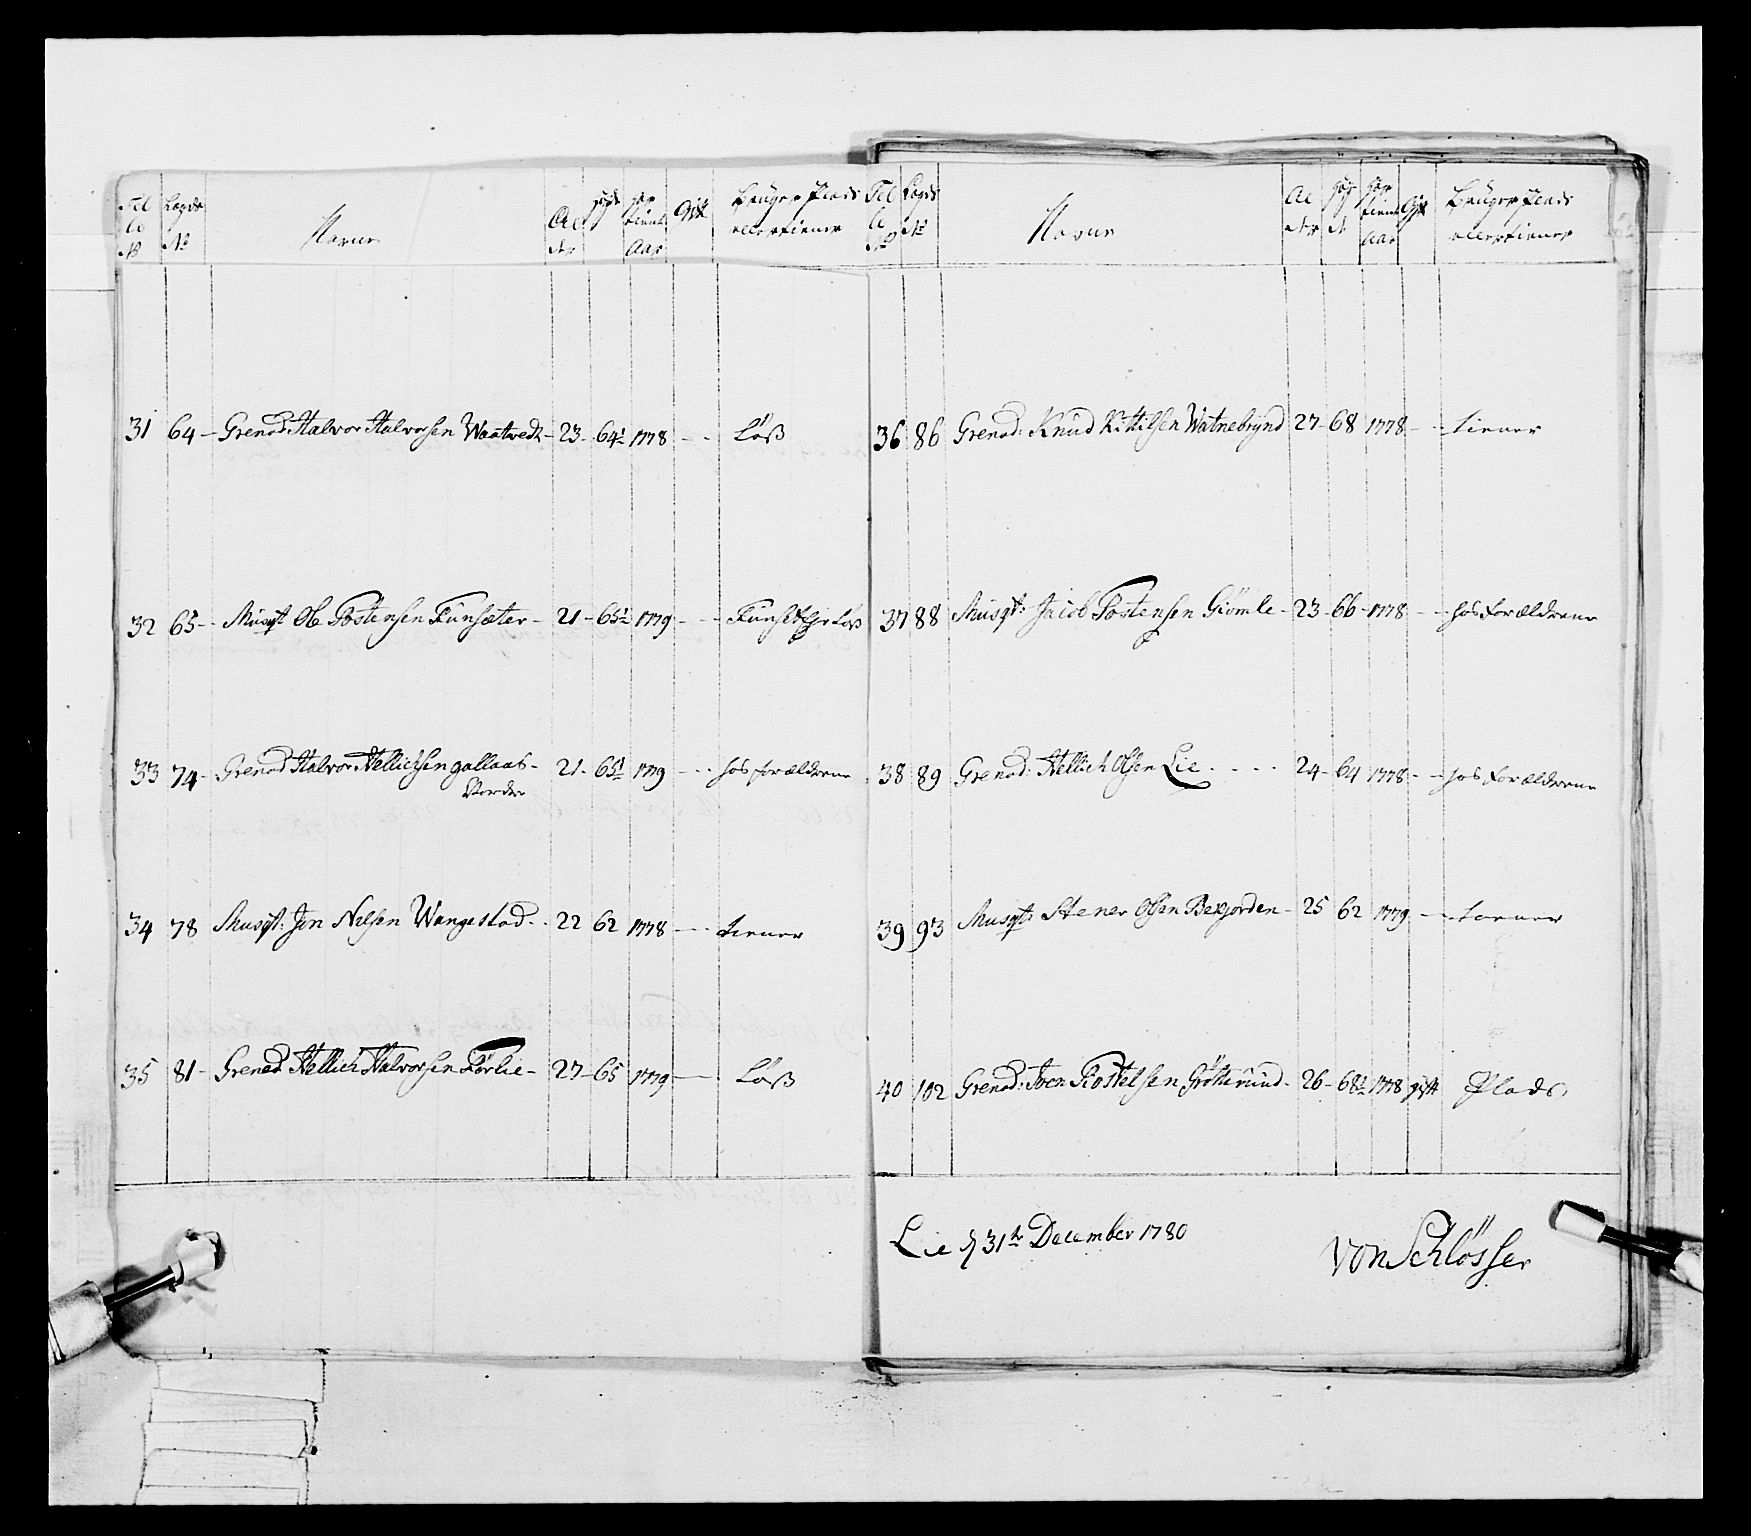 Tel le № Lægds № Navne Al der høyde har tient Aar Gift Bruger Plads eller tiener
31 64 – Grenad Halvor Halvorsen Waatvedt – 23 – 64½ 1778 – – Løß
32 65 – Musqt Ole Tostensen Funsæter – 21 – 65½ 1779 – – Løß
33 74 – Grenad Halvor Hellichsen gallaas – 21 – 1779 – – hos forældrene
Nordre
34 78 Musqt: Jon Nelsen Wangestad – 22 62 1778 – – tiener
35 81 – Grenad Hellich Halvorsen Førlie – 27 – 65 1779 – Løß
Tel le № Lægds № Navne Al der høy de har tient aar Gift Bruger Plads eller tiener
36 86 Grenad: Knud Kittilsen Watnebrÿnd 27 – 68 1778 – – tiener
37 88 Musqt: Jacob Tostensen Giømle – 23 – 66 – 1778 – – hos Forældrene
38 89 Grenad: Hellich Olsen Lie . . . . 24 – 64 1778 – – hos Forældrene
39 93 Musqt: Stener Olsen Bexjorden – 25 62 1779 – – tiener
40 102 Grenad: – 26 – 68½ 1778 gift Plads
Lie d 31te December 1780
von Schløsser